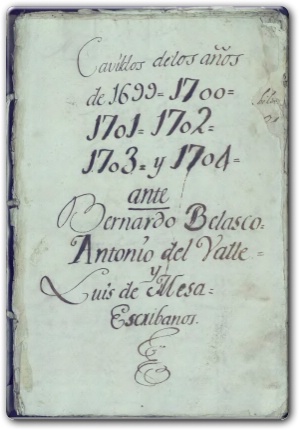 Cavildos de los años
de 1699= 1700=
1701= 1702=
1703= y 1704=
ante
Bernardo Belasco=
Antonio del Valle=
y
Luis de Mesa=
Escribanos.